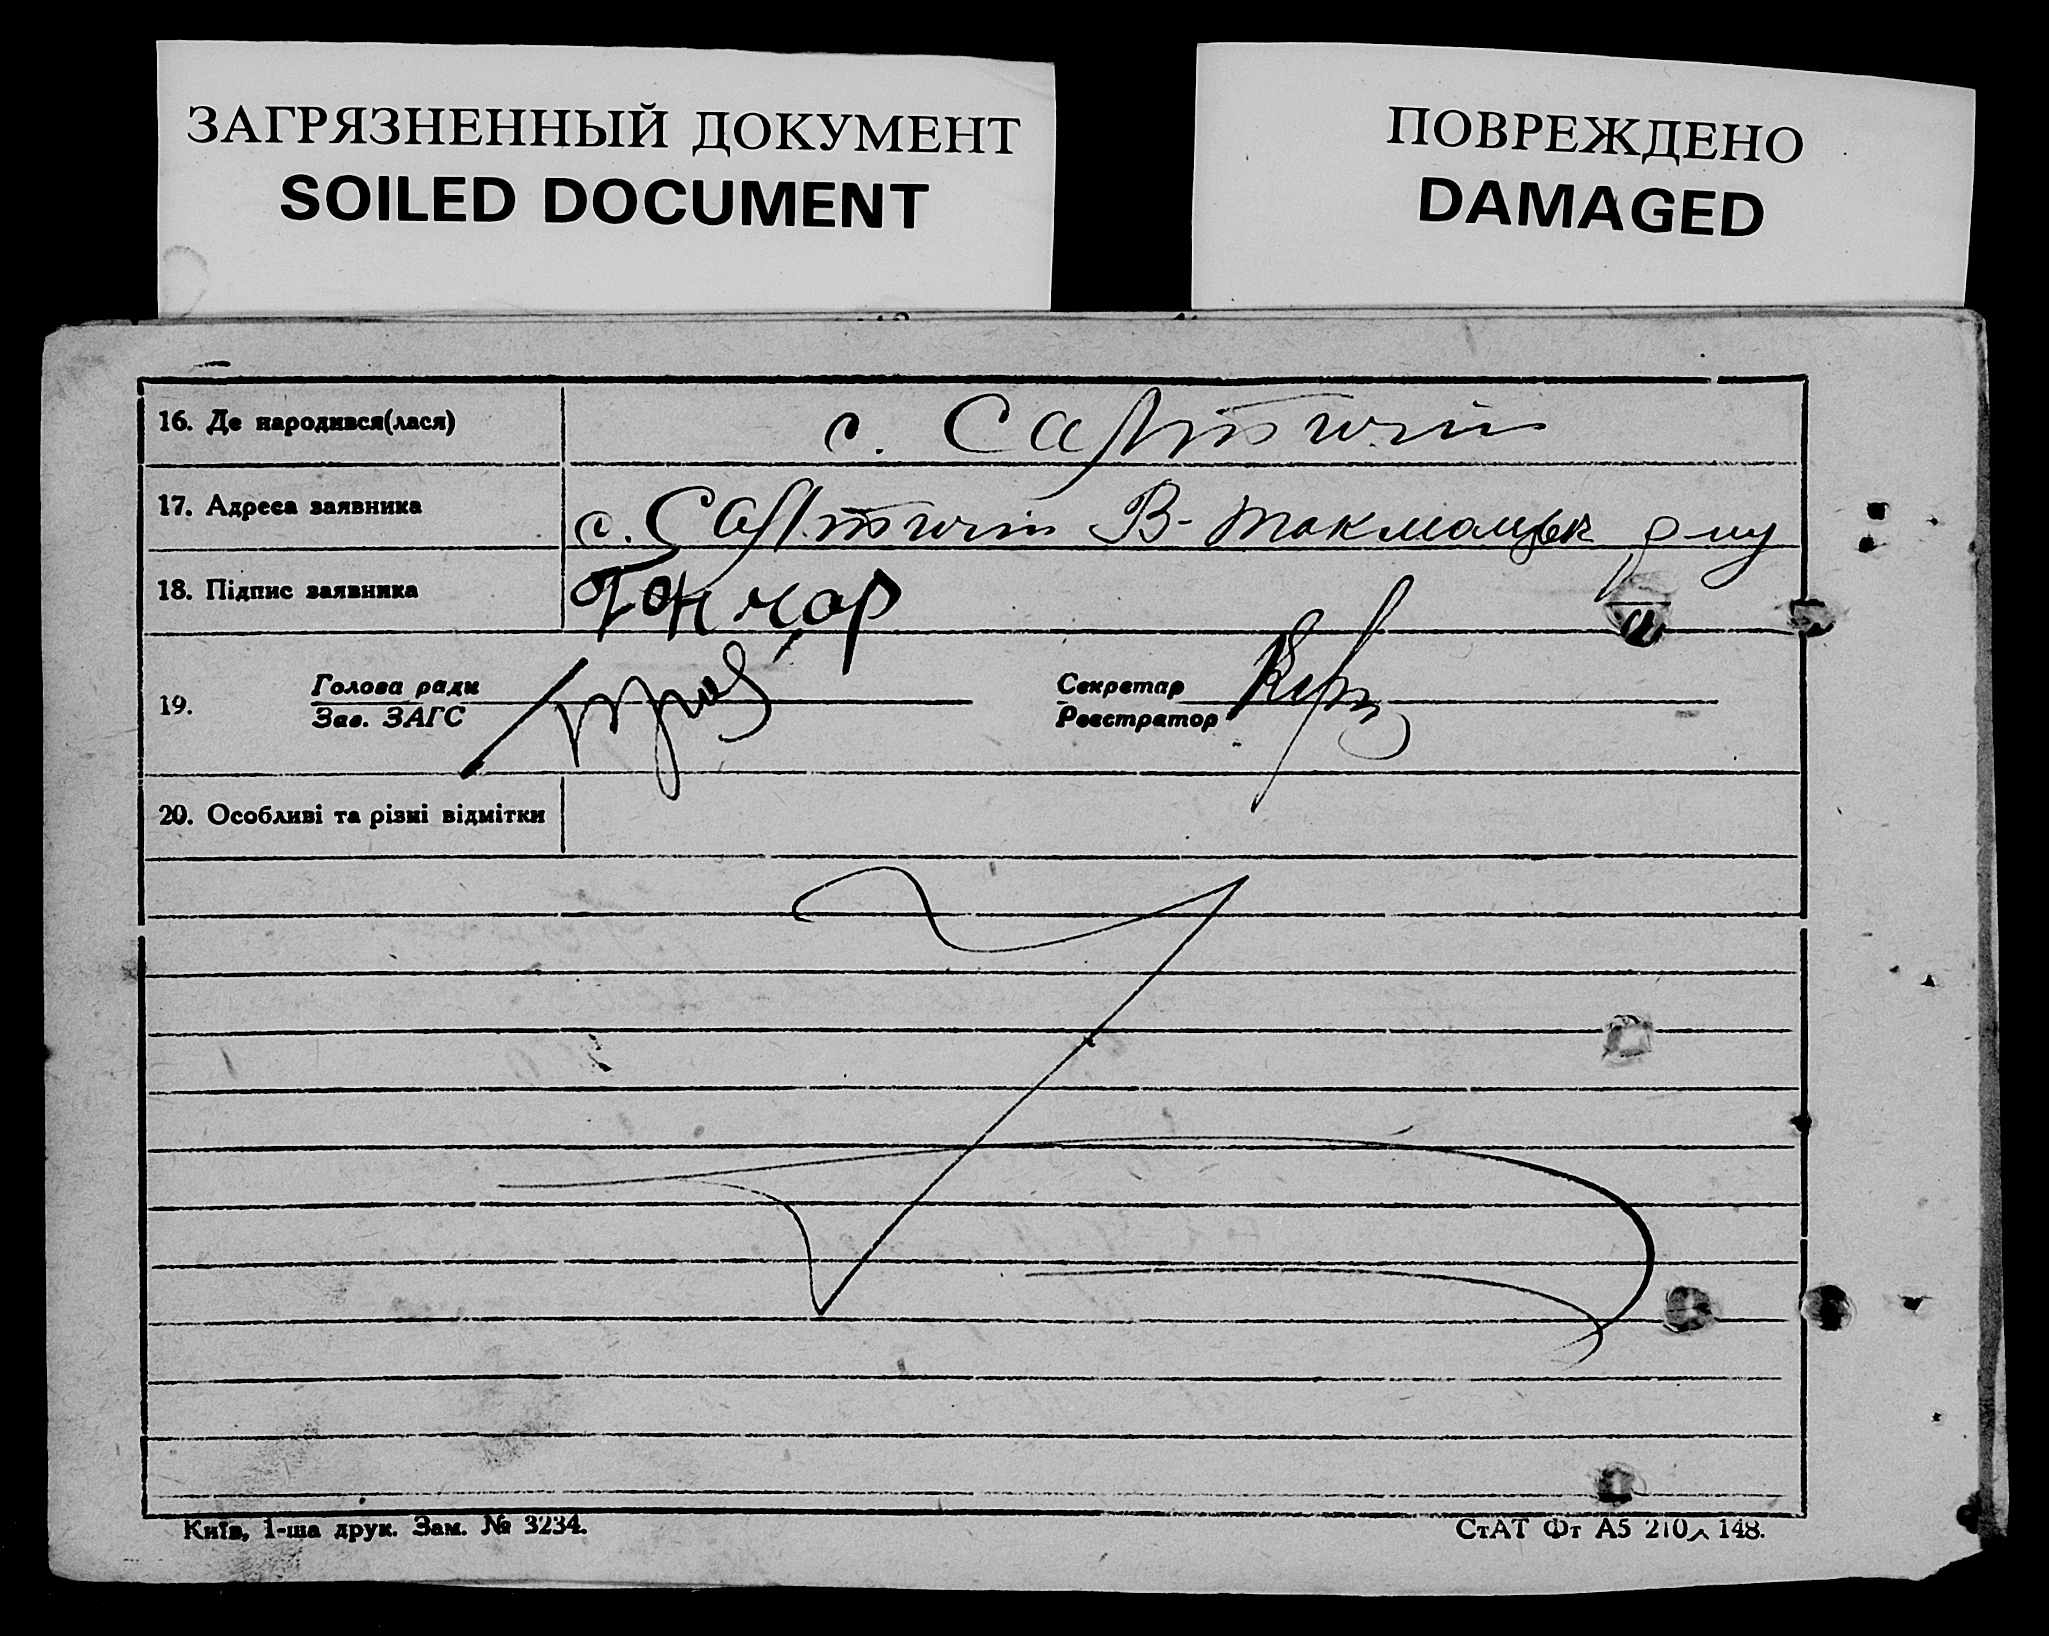 ЗАГРЯЗНЕННЫЙ ДОКУМЕНТ
SOILED DOCUMENT
ПОВРЕЖДЕНО
DAMAGED
16. Де народився(лася) с. Салтичія
17. Адреса заявника с. Салтичія В-Токмацьк р-ну
18. Підпис заявника Гончар
19. Голова ради
Зав. ЗАГС
Секретар
Реєстратор
20. Особливі та різні відмітки
Київ, 1-ша друк. Зам. № 3234.
СтАТ Фт А5 210 148.